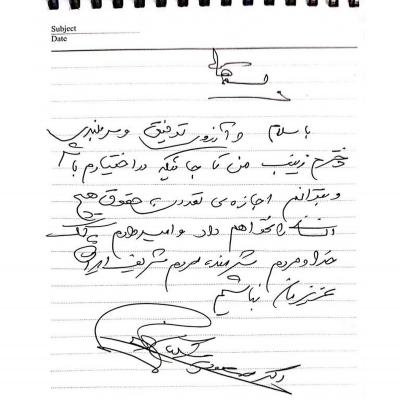 Subject
Date
با سلام و آرزوی توفیق و سربلندی
دخترم زینب من تا جائیکه در اختیارم با
و بتوانم اجازه‌ی تعدی به حقوق هیچ
انسانی را نخواهم داد و امیدوارم
خدا و مردم شرمنده مردم شریف ایران
عزیزمان نباشیم
دکتر